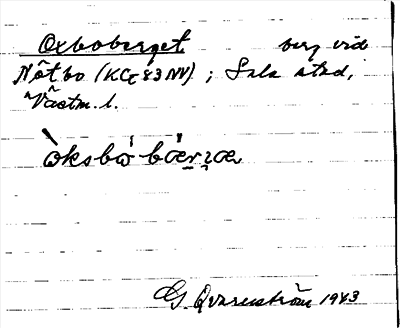 Oxboberget berg vid
Nötbo (KCc 83 NV) ; Sala stad,
Västm. l.
òksbò bærɿæ
G. Qvarnström 1943